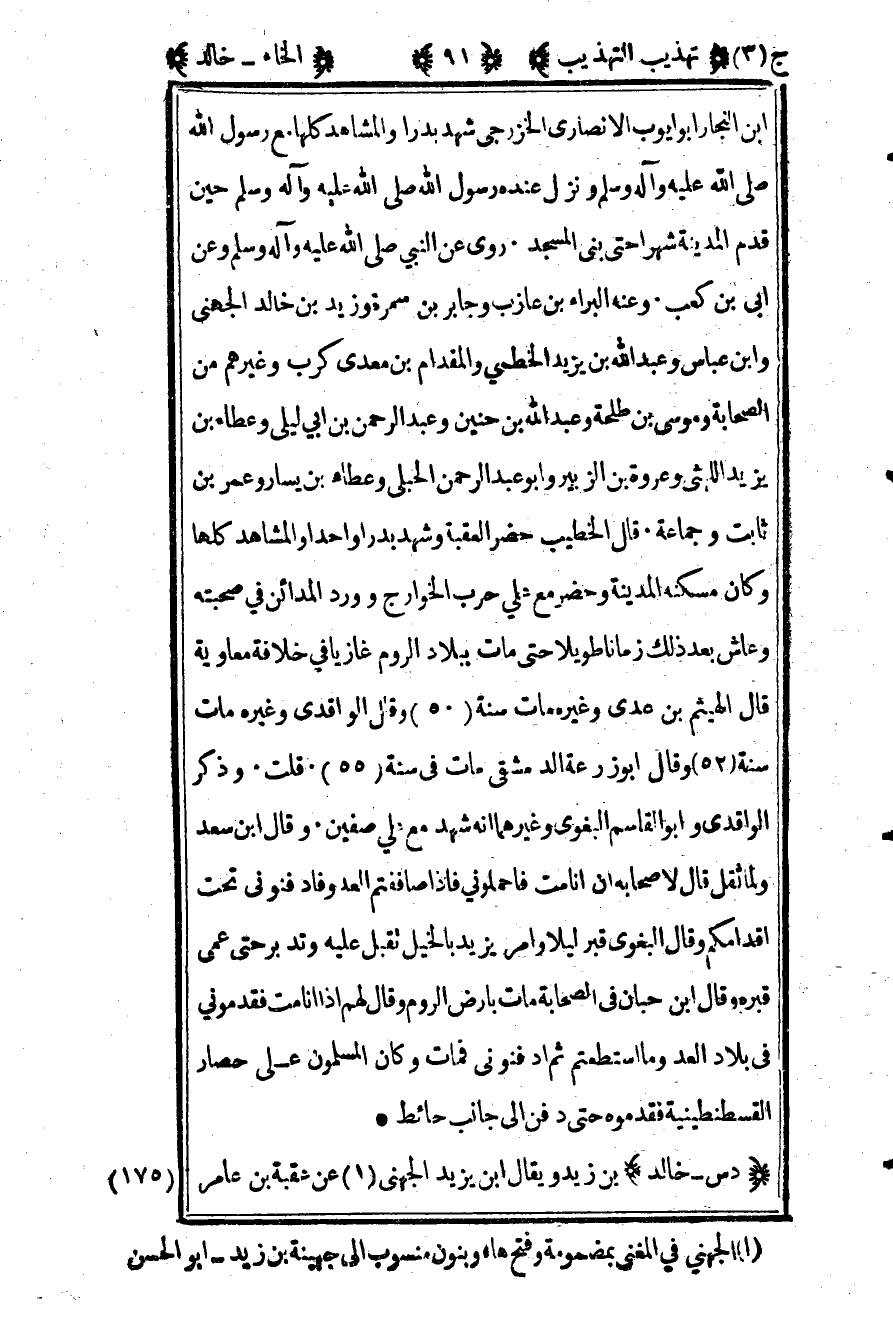 ج (٣) ﴿ تهذيب التهذيب ﴾ ﴿ ٩١ ﴾ ﴿ الخاء ـ خالد ﴾
ابن النجار ابو ايوب الانصارى الخزرجى شهد بدرا والمشاهد كلها مع رسول الله
صلى الله عليه وآله وسلم ونزل عنده رسول الله صلى الله عليه وآله وسلم حين
قدم المدينة شهرا حتى بنى المسجد ۰ روى عن النبي صلى الله عليه وآله وسلم وعن
ابى بن كعب ۰ وعنه البراء بن عازب وجابر بن سمرة وزيد بن خالد الجهنى
وابن عباس وعبد الله بن يزيد الخطمي والمقدام بن معدى كرب وغيرهم من
الصحابة وموسى بن طلحة وعبد الله بن حنين وعبد الرحمن بن ابي ليلى وعطاء بن
يزيد الليثى وعروة بن الزبير وابو عبد الرحمن الحبلى وعطاء بن يسار وعمر بن
ثابت وجماعة ۰ قال الخطيب حضر العقبة وشهد بدرا واحدا والمشاهد كلها
وكان مسكنه المدينة وحضر مع علي حرب الخوارج وورد المدائن في صحبته
وعاش بعد ذلك زمانا طويلا حتى مات ببلاد الروم غازيا في خلافة معاوية
قال الهيثم بن عدى وغيره مات سنة (٥٠) وقال الواقدى وغيره مات
سنة (٥٢) وقال ابو زرعة الدمشقى مات فى سنة (٥٥) ۰ قلت ۰ وذكر
الواقدى وابو القاسم البغوى وغيرهما انه شهد مع علي صفين ۰ وقال ابن سعد
ولما ثقل قال لاصحابه ان انا مت فاحملوني فاذا صاففتم العدو فادفنونى تحت
اقدامكم وقال البغوى قبر ليلا وامر يزيد بالخيل تقبل عليه وتدبر حتى عمى
قبره وقال ابن حبان فى الصحابة مات بارض الروم وقال لهم اذا انا مت فقدموني
فى بلاد العدو ما استطعتم ثم ادفنونى فمات وكان المسلمون عـلى حصار
القسطنطينية فقدموه حتى دفن الى جانب حائط ●
﴿ دس ـ خالد ﴾ بن زيد ويقال ابن يزيد الجهنى (١) عن عقبة بن عامر (١٧٥)
(١) الجهني في المغنى بمضمومة وفتح هاء وبنون منسوب الى جهينة بن زيد ـ ابو الحسن